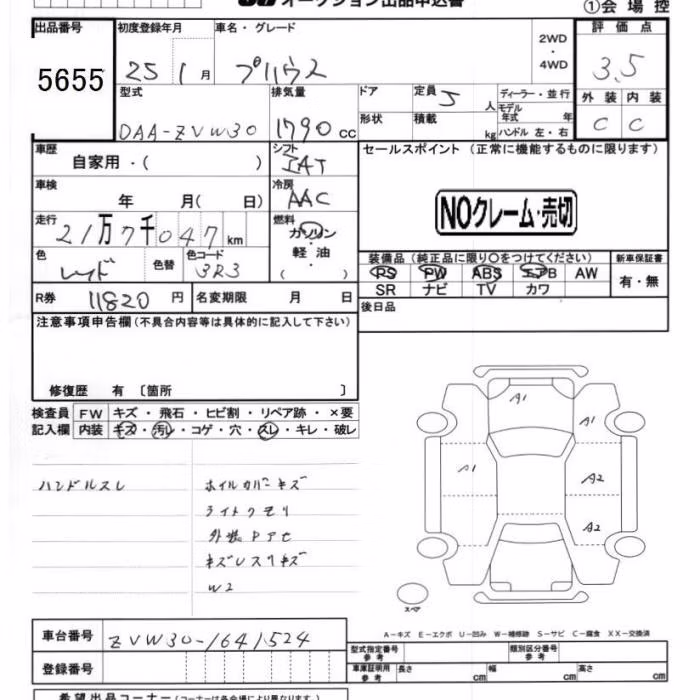 オークション出品申込書
①会場控
出品番号 初度登録年月 車名・グレード 2WD・4WD 評価点
5655 25 1月 プリウス 3.5
型式 排気量 ドア 定員 5人 ディーラー・並行 外装 内装
DAA-ZVW30 1790 cc 形状 積載 kg モデル年式 年 ハンドル 左・右 C C
車歴 自家用・( ) シフト IAT セールスポイント (正常に機能するものに限ります)
車検 年 月( 日) 冷房 AAC NOクレーム・売切
走行 21万7千047km 燃料 ガソリン・軽油 ( )
色 レッド 色替 色コード 3R3 装備品 (純正品に限り〇をつけてください) 新車保証書
PS PW ABS エアB AW 有・無
SR ナビ TV カワ
R券 11820 円 名変期限 月 日 後日品
注意事項申告欄 (不具合内容等は具体的に記入して下さい)
修復歴 有 〔箇所 〕
検査員 FW キズ・飛石・ヒビ割・リペア跡・×要
記入欄 内装 キズ・汚レ・コゲ・穴・スレ・キレ・破レ
A1
A1
A1
A2
A2
ハンドルスレ ホイルカバーキズ
ライトクモリ
W2
スペア
A-キズ E-エクボ U-凹み W-補修跡 S-サビ C-腐食 XX-交換済
車台番号 ZVW30-1641524 型式指定番号 参考 類別区分番号 参考
登録番号 車庫証明用 参考 長さ cm 幅 cm 高さ cm
希望出品コーナー (コーナーは各会場により異なります。)